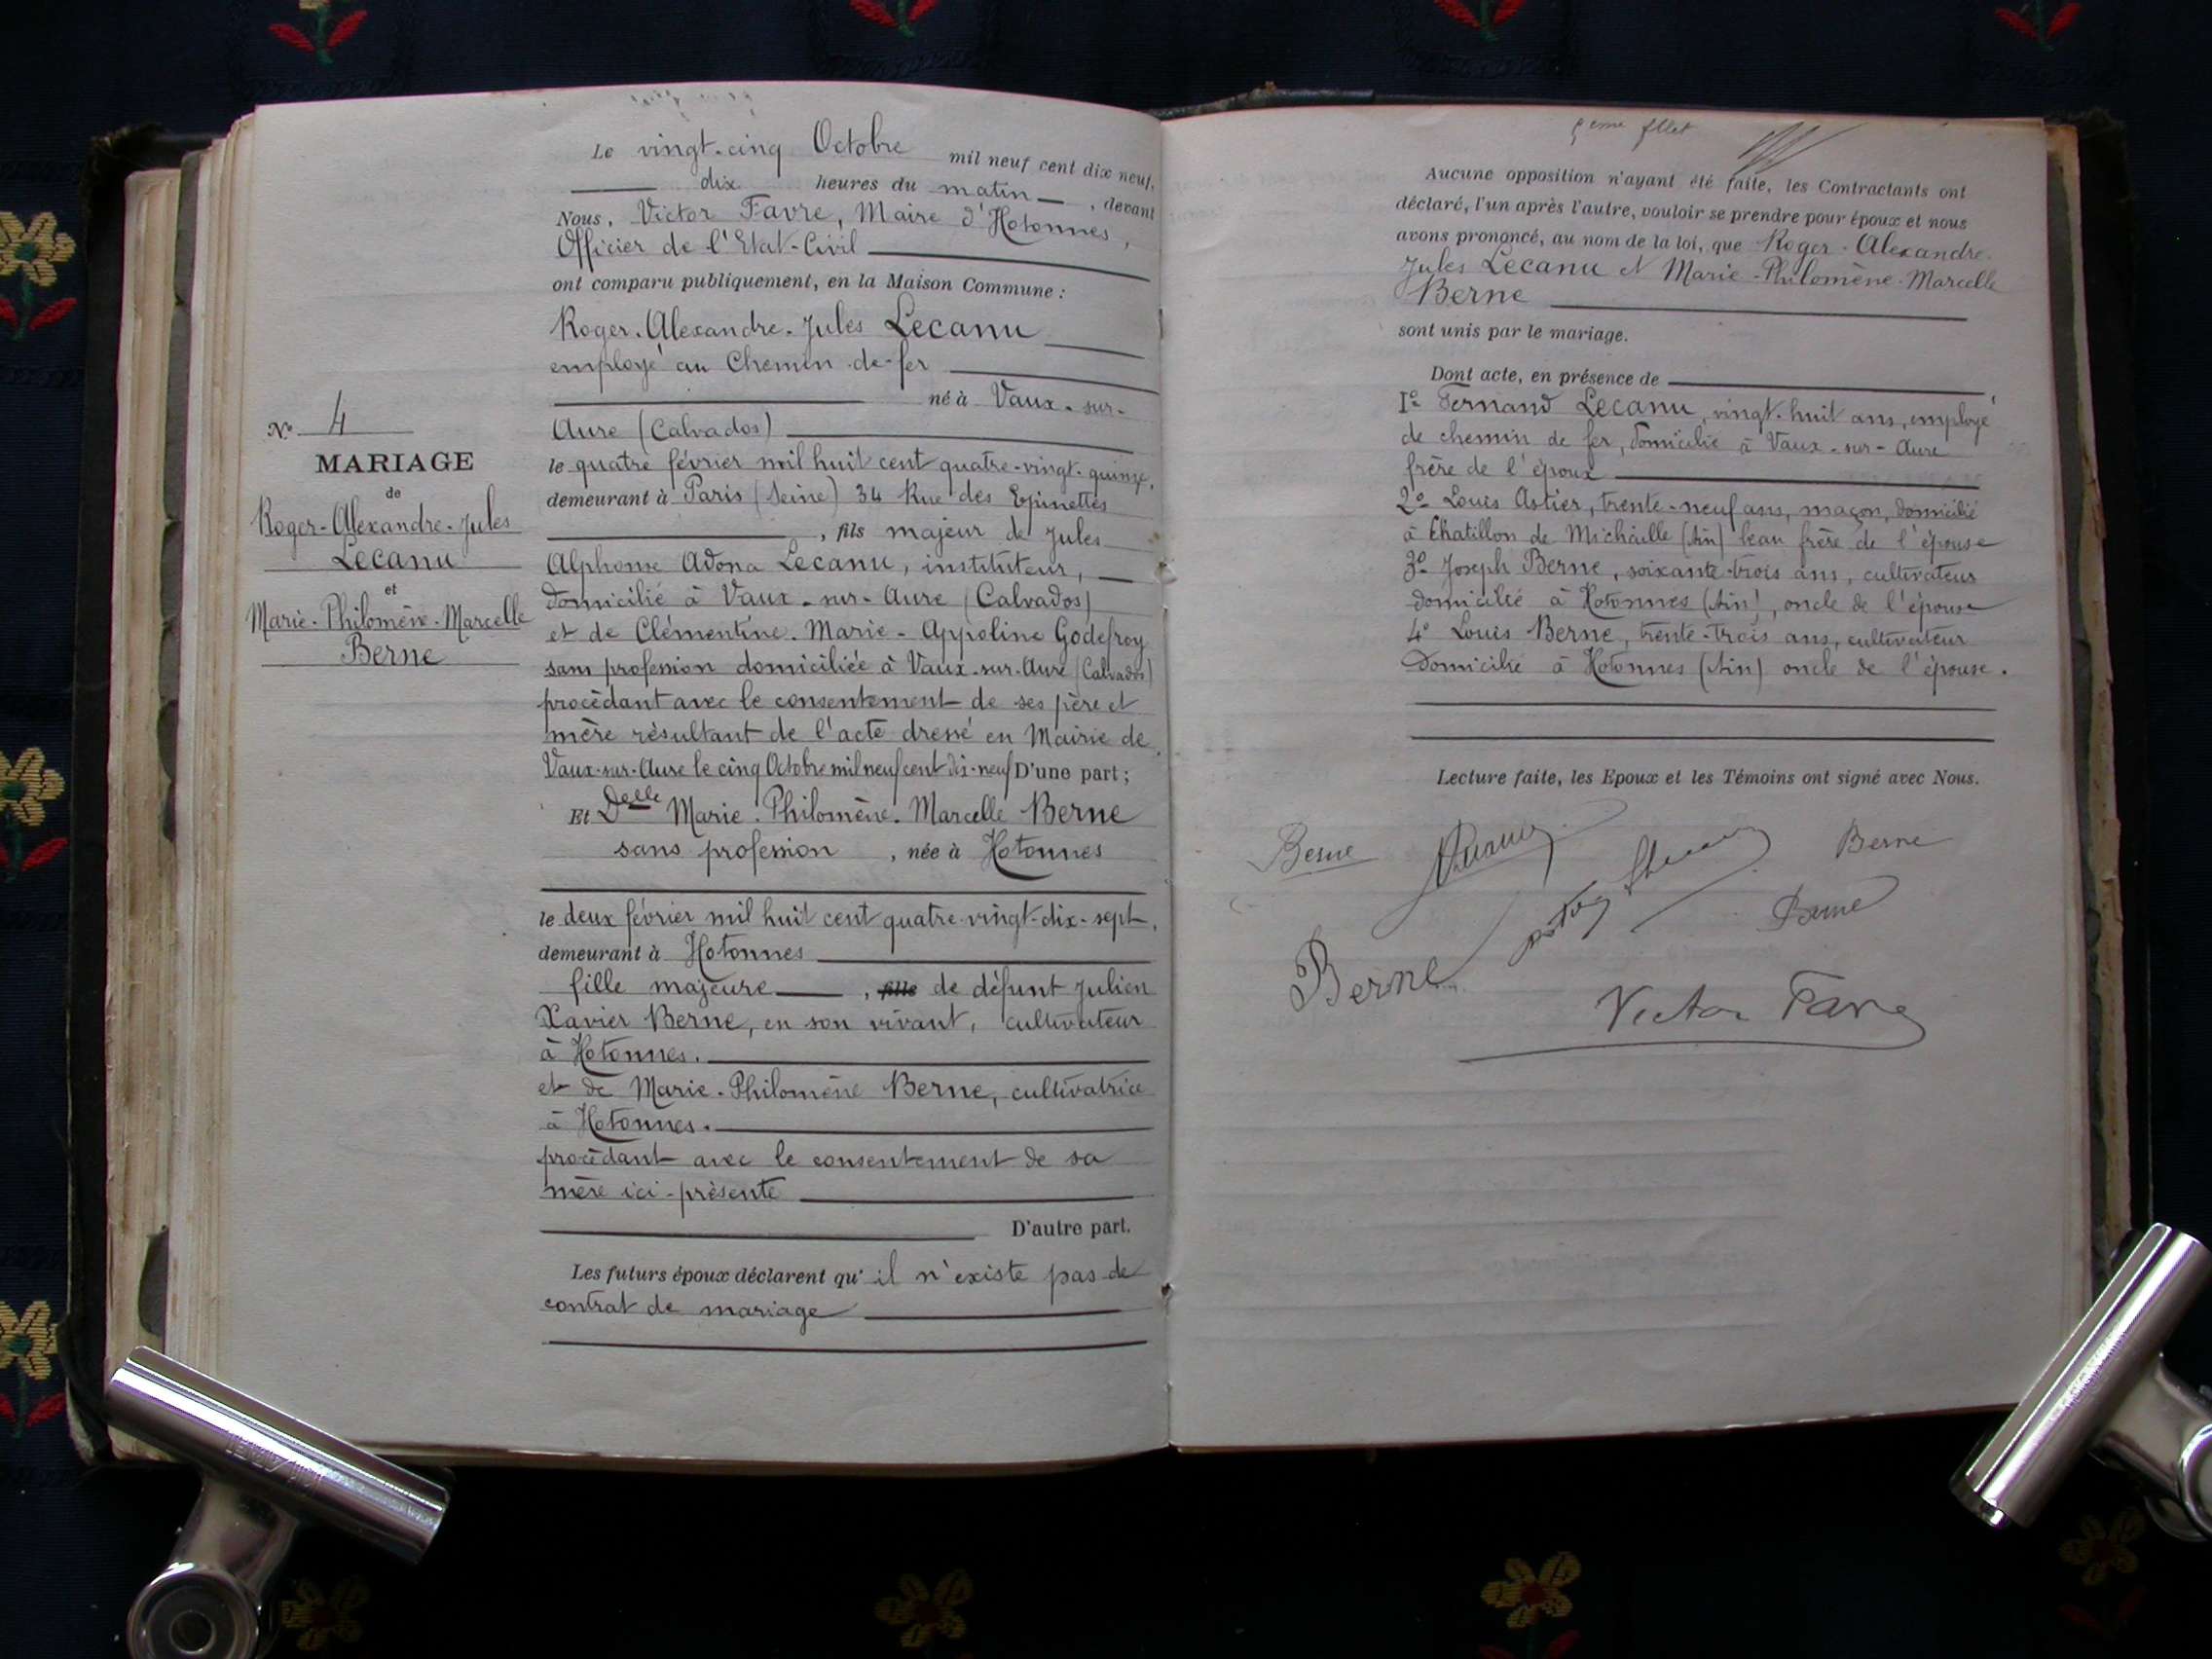 Le vingt-cinq Octobre mil neuf cent dix neuf,
dix heures du matin, devant
Nous, Victor Favre, Maire d'Hotonnes,
Officier de l'Etat-Civil
ont comparu publiquement, en la Maison Commune :
Roger-Alexandre-Jules Lecanu
employé au Chemin-de-fer
né à Vaux-sur-
Aure (Calvados)
le quatre février mil huit cent quatre-vingt-quinze,
demeurant à Paris (Seine) 34 Rue des Epinettes
, fils majeur de Jules
Alphonse Adona Lecanu, instituteur,
domicilié à Vaux-sur-Aure (Calvados)
et de Clémentine-Marie-Appoline Godefroy
sans profession domiciliée à Vaux-sur-Aure (Calvados)
procédant avec le consentement de ses père et
mère résultant de l'acte dressé en Mairie de
Vaux-sur-Aure le cinq Octobre mil neuf cent dix-neuf D'une part ;
Et Delle Marie-Philomène-Marcelle Berne
sans profession, née à Hotonnes
le deux février mil huit cent quatre-vingt-dix-sept,
demeurant à Hotonnes
fille majeure, fille de défunt Julien
Xavier Berne, en son vivant, cultivateur
à Hotonnes.
et de Marie-Philomène Berne, cultivatrice
à Hotonnes.
procédant avec le consentement de sa
mère ici-présente
D'autre part.
Les futurs époux déclarent qu'il n'existe pas de
contrat de mariage
N° 4
MARIAGE
de
Roger-Alexandre-Jules
Lecanu
et
Marie-Philomène-Marcelle
Berne
Aucune opposition n'ayant été faite, les Contractants ont
déclaré, l'un après l'autre, vouloir se prendre pour époux et nous
avons prononcé, au nom de la loi, que Roger-Alexandre-
Jules Lecanu et Marie-Philomène-Marcelle
Berne
sont unis par le mariage.
Dont acte, en présence de
1° Fernand Lecanu, vingt-huit ans, employé
de chemin de fer, domicilié à Vaux-sur-Aure
frère de l'époux
2° Louis Astier, trente-neuf ans, maçon, domicilié
à Chatillon de Michaille (Ain) beau frère de l'épouse
3° Joseph Berne, soixante-trois ans, cultivateur
domicilié à Hotonnes (Ain), oncle de l'épouse
4° Louis Berne, trente-trois ans, cultivateur
Domicilié à Hotonnes (Ain) oncle de l'épouse.
Lecture faite, les Epoux et les Témoins ont signé avec Nous.
Berne Berne
Berne
Berne
Victor Favre